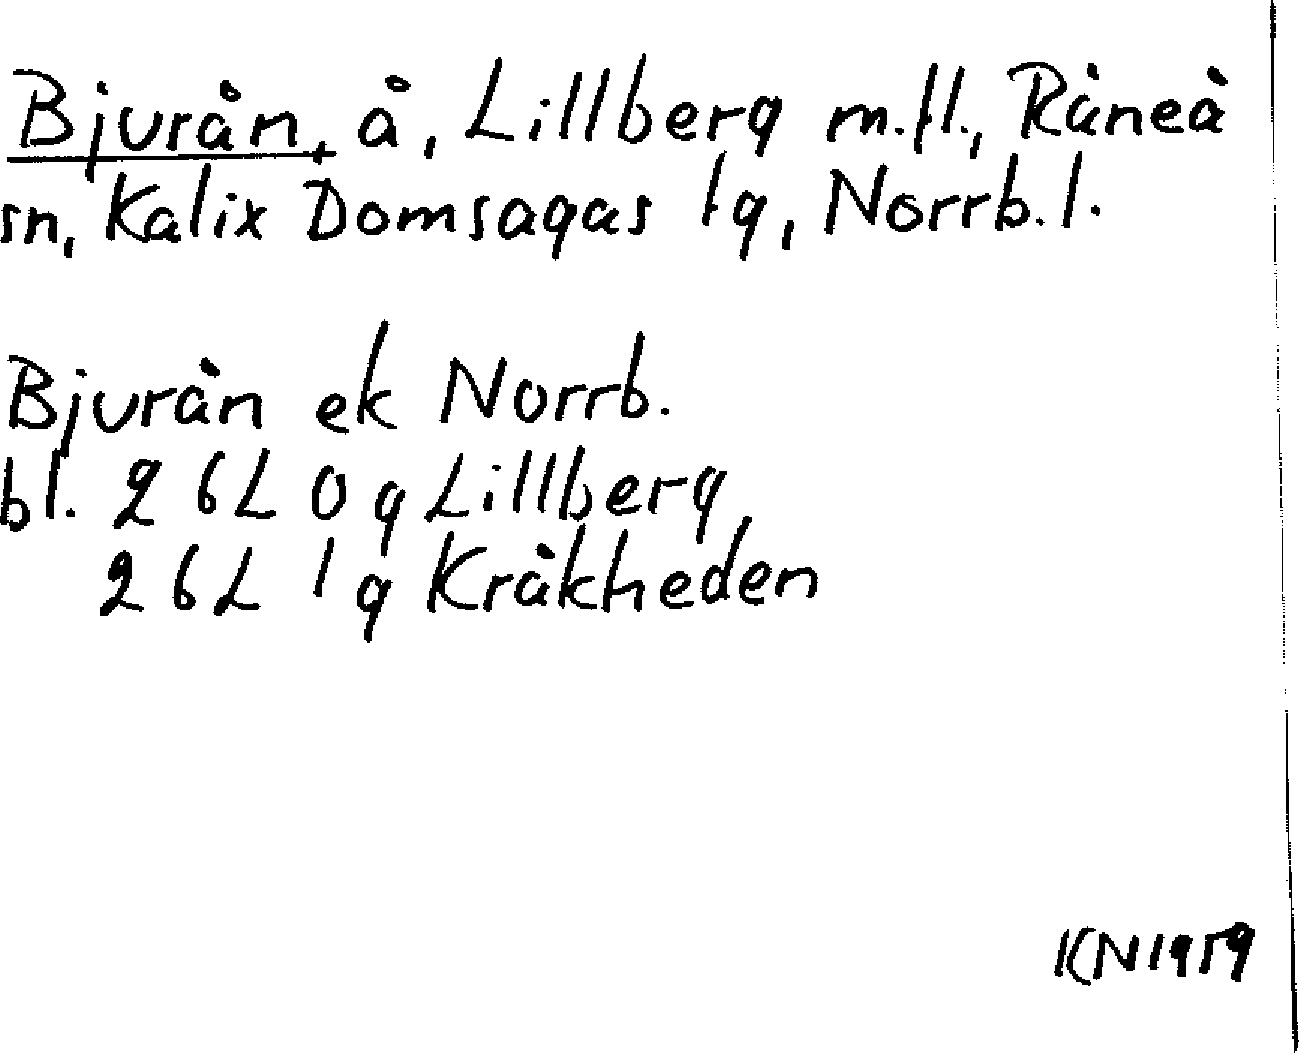 Bjurån, å, Lillberg m.fl., Råneå
sn, Kalix Domsagas tg, Norrb. l.
Bjurån ek Norrb.
bl. 26L 0g Lillberg
26L 1g Kråkheden
KN1959